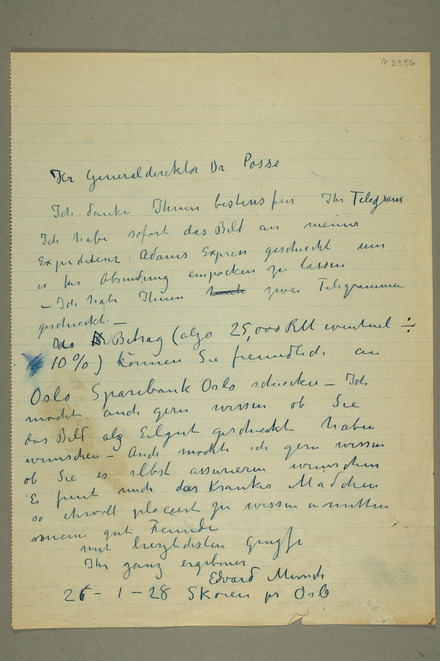 N 3356
Hr Generaldirektor Dr Posse
Ich danke Ihnen bestens für Ihr Telegram
Ich habe sofort das Bild an meine
Expediteur Adams Express geschickt um
es für Absendung einpacken zu lassen
– Ich habe Ihnen zwei Telegramme
geschickt –
Betrag (also 25,000 RM eventuel ÷
10%) können Sie freundlich an
Oslo Sparebank Oslo schicken – Ich
möchte auch gern wissen ob Sie
das Bild als Eilgut geschickt haben
wünschen – Auch möchte ich gern wissen
ob Sie es selbst assurieren wünschen
Es freut mich das Kranke Mädchen
so placiert zu wissen
meine gute Freunde
mit herzlichsten Grüsse
Ihr ganz ergebener
Edvard Munch
26 – 1 – 28 Skøien pr Oslo